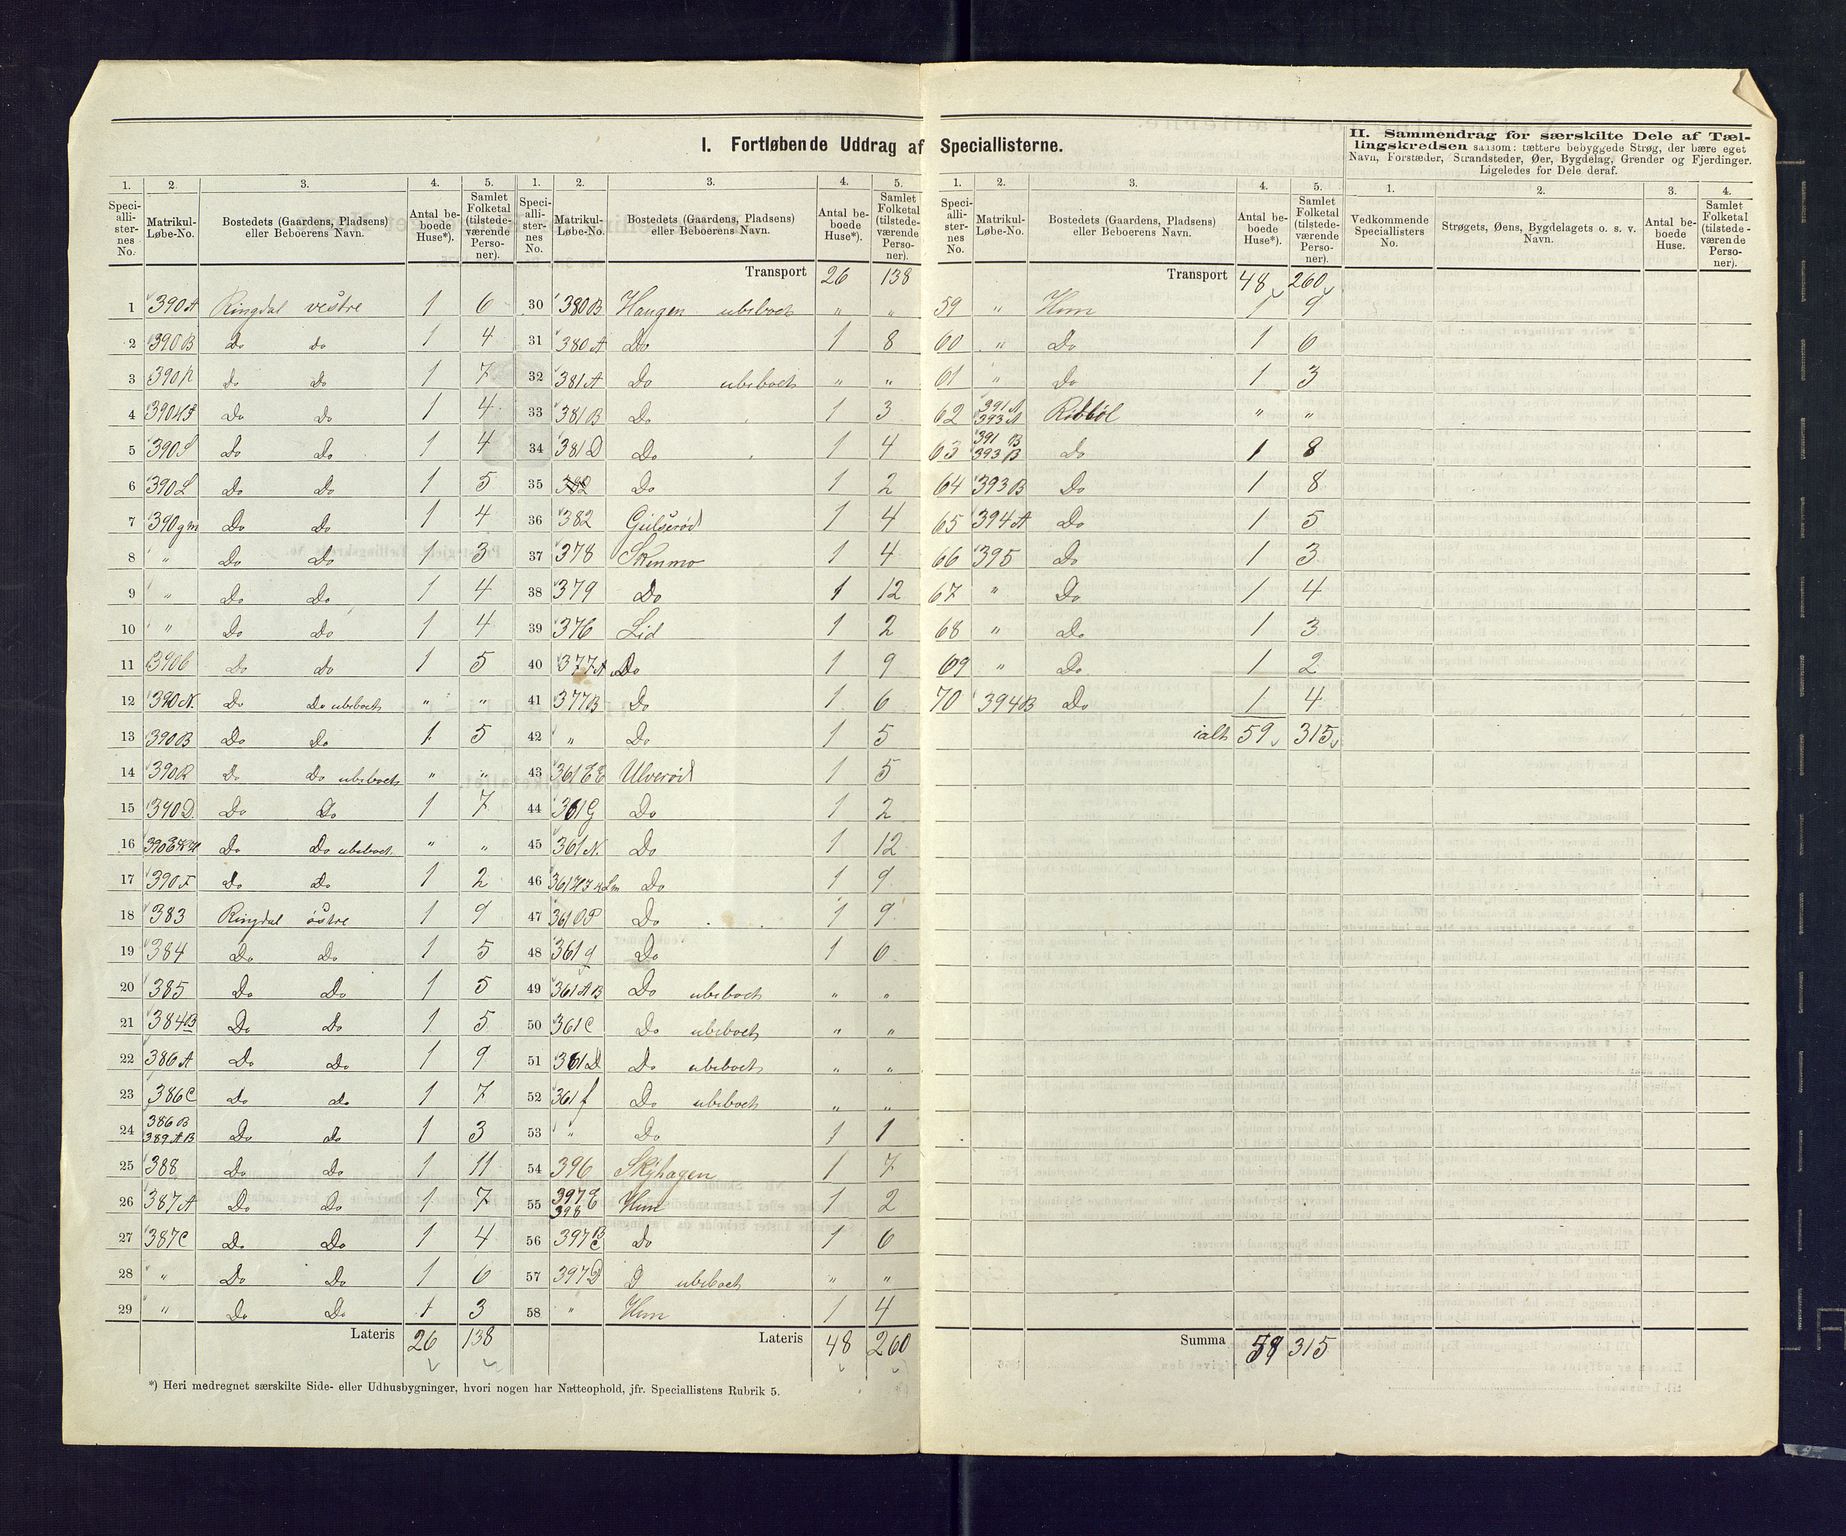 I. Fortløbende Uddrag af Speciallisterne.
II. Sammendrag for særskilte Dele af Tæl-
lingskredsen saasom: tættere bebyggede Strøg, der bære eget
Navn, Forstæder, Strandsteder, Øer, Bygdelag, Grender og Fjerdinger.
Ligeledes for Dele deraf.
1. 2. 3. 4. 5.
Speci-alli-ster-nes No. Matrikul-Løbe-No. Bostedets (Gaardens, Pladsens) eller Beboerens Navn. Antal be-boede Huse*). Samlet Folketal (tilstede-værende Perso-ner).
1 390A Ringdal vestre 1 6
2 390B Do Do 1 4
3 Do Do 1 7
4 Do Do 1 4
5 390S Do Do 1 4
6 390L Do Do 1 5
7 390gm Do Do 1 4
8 " Do Do 1 3
9 " Do Do 1 4
10 " Do Do 1 4
11 Do Do 1 5
12 390N. Do Do ubeboet " "
13 390B Do Do 1 5
14 390R Do Do ubeboet " "
15 390D. Do Do 1 7
16 Do Do ubeboet " "
17 390F Do Do 1 2
18 383 Ringdal østre 1 9
19 384 Do Do 1 5
20 385 Do Do 1 5
21 384B Do Do 1 5
22 386A Do Do 1 9
23 386C Do Do 1 7
24 386B 389AB Do Do 1 3
25 388 Do Do 1 11
26 387A Do Do 1 7
27 387C Do Do 1 4
28 " Do Do 1 6
29 " Do Do 1 3
Lateris 26 138
*) Heri medregnet særskilte Side- eller Udhusbygninger, hvori nogen har Natteophold, jfr. Speciallistens Rubrik 5.
1. 2. 3. 4. 5.
Speci-alli-ster-nes No. Matrikul-Løbe-No. Bostedets (Gaardens, Pladsens) eller Beboerens Navn. Antal be-boede Huse*). Samlet Folketal (tilstede-værende Perso-ner).
Transport 26 138
30 380B Haugen ubeboet " "
31 380A Do 1 8
32 381A Do ubeboet " "
33 381B Do 1 3
34 381D Do 1 4
35 382 Do 1 2
36 382 Gulserød 1 4
37 378 Skenmo 1 4
38 379 Do 1 12
39 376 Lid 1 2
40 377A Do 1 9
41 377B Do 1 6
42 " Do 1 5
43 361EE Ulverød 1 5
44 361G Do 1 2
45 361N. Do 1 12
46 Do 1 9
47 361OP Do 1 9
48 361q Do 1 6
49 361AB Do ubeboet " "
50 361C Do ubeboet " "
51 361D Do ubeboet " "
52 361f Do ubeboet " "
53 " Do 1 1
54 396 Skyhagen 1 7
55 397E 398 Hem 1 2
56 397B C Do 1 6
57 397D D ubeboet " "
58 " Hem 1 4
Lateris 48 260
1. 2. 3. 4. 5.
Speci-alli-ster-nes No. Matrikul-Løbe-No. Bostedets (Gaardens, Pladsens) eller Beboerens Navn. Antal be-boede Huse*). Samlet Folketal (tilstede-værende Perso-ner).
Transport 48 260
59 " Hem 1 9
60 " Do 1 6
61 " Do 1 3
62 391A 393A " "
63 391B 393B Do 1 8
64 393B Do 1 8
65 394A Do 1 5
66 395 Do 1 3
67 " Do 1 4
68 " Do 1 3
69 " Do 1 2
70 394B Do 1 4
ialt 59 315
Summa 59 315
1. 2. 3. 4.
Vedkommende Speciallisters No. Strøgets, Øens, Bygdelagets o. s. v. Navn. Antal be-boede Huse. Samlet Folketal (tilstede-værende Perso-ner).